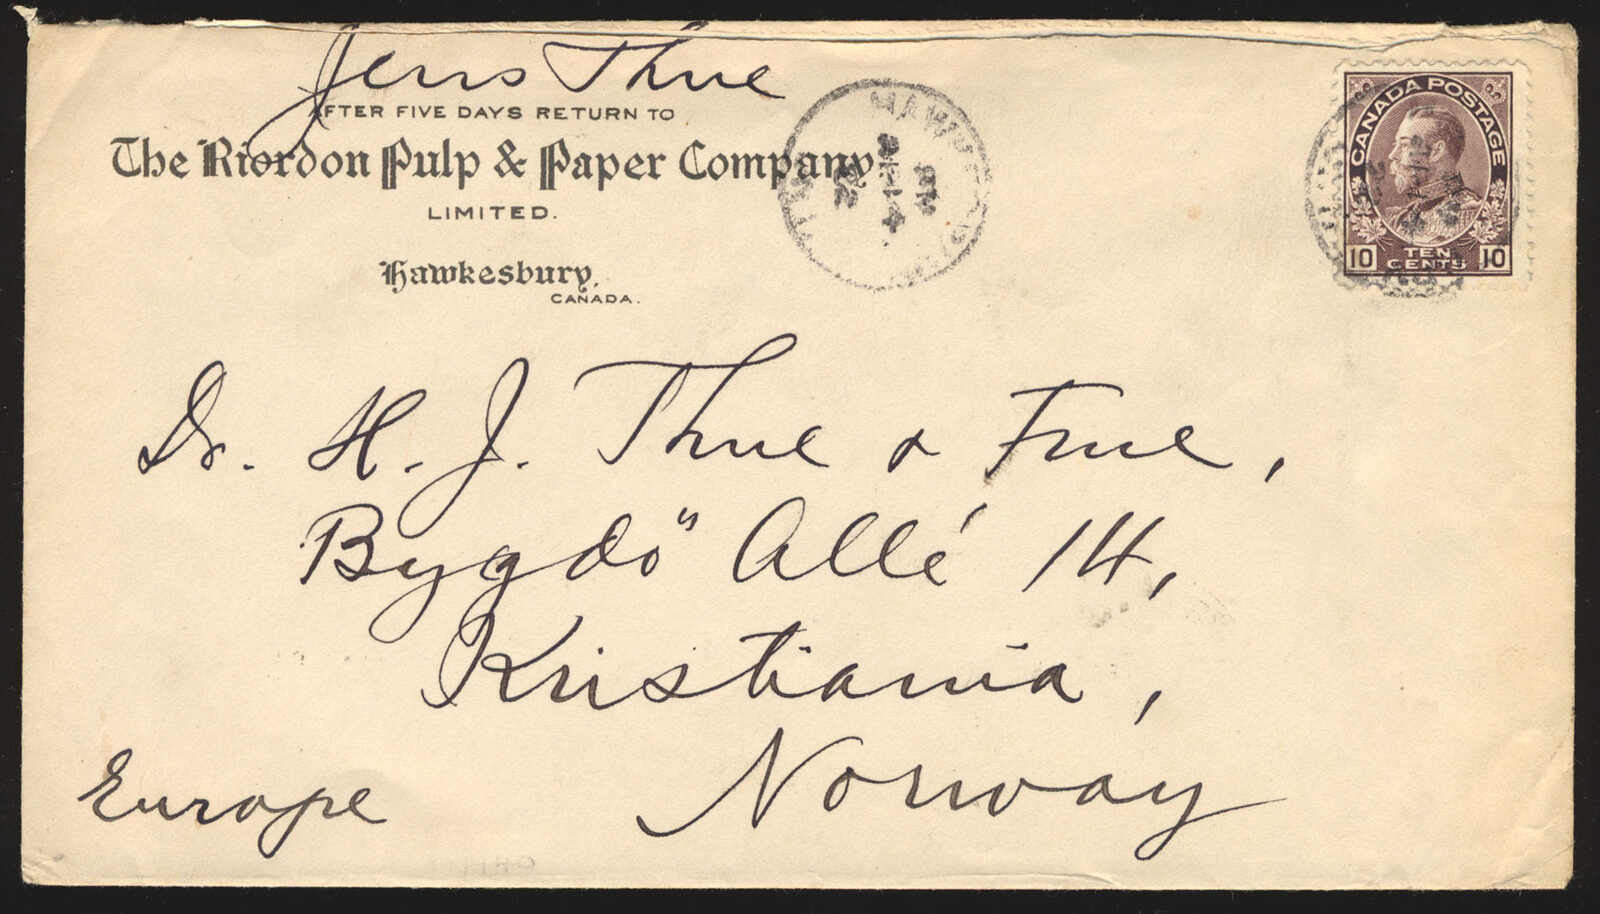 Jens Thue
AFTER FIVE DAYS RETURN TO
The Riordon Pulp & Paper Company
LIMITED.
Hawkesbury,
CANADA.
CANADA POSTAGE
10 TEN CENTS 10
PM
14
22
Dr. H. J. Thue & Frue,
Bygdö" Allé 14,
Kristiania,
Norway
Europe